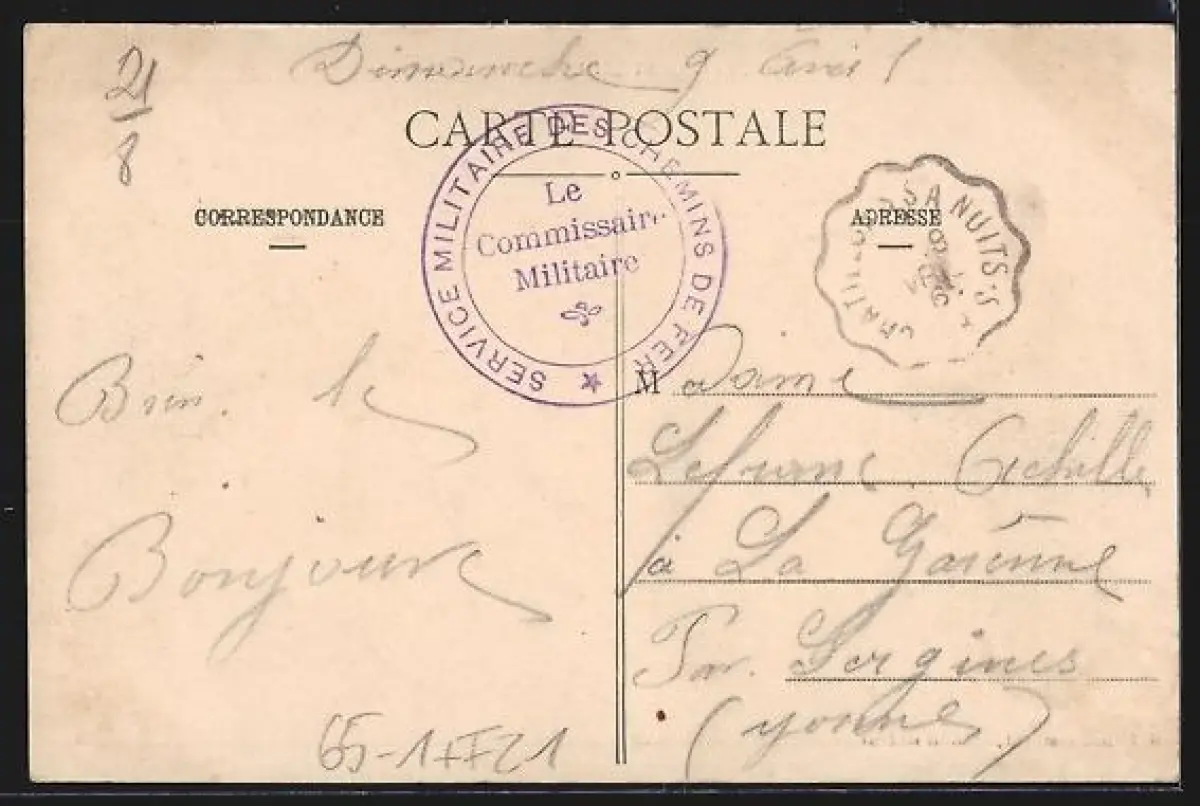 Dimanche 9 Avril
21
8
CARTE POSTALE
CORRESPONDANCE
ADRESSE
SERVICE MILITAIRE DES CHEMINS DE FER
Le
Commissaire
Militaire
NUITS-S
Bien le
Bonjour
Madame
Lefranc Achille
à La Garenne
Par Sergines
(Yonne)